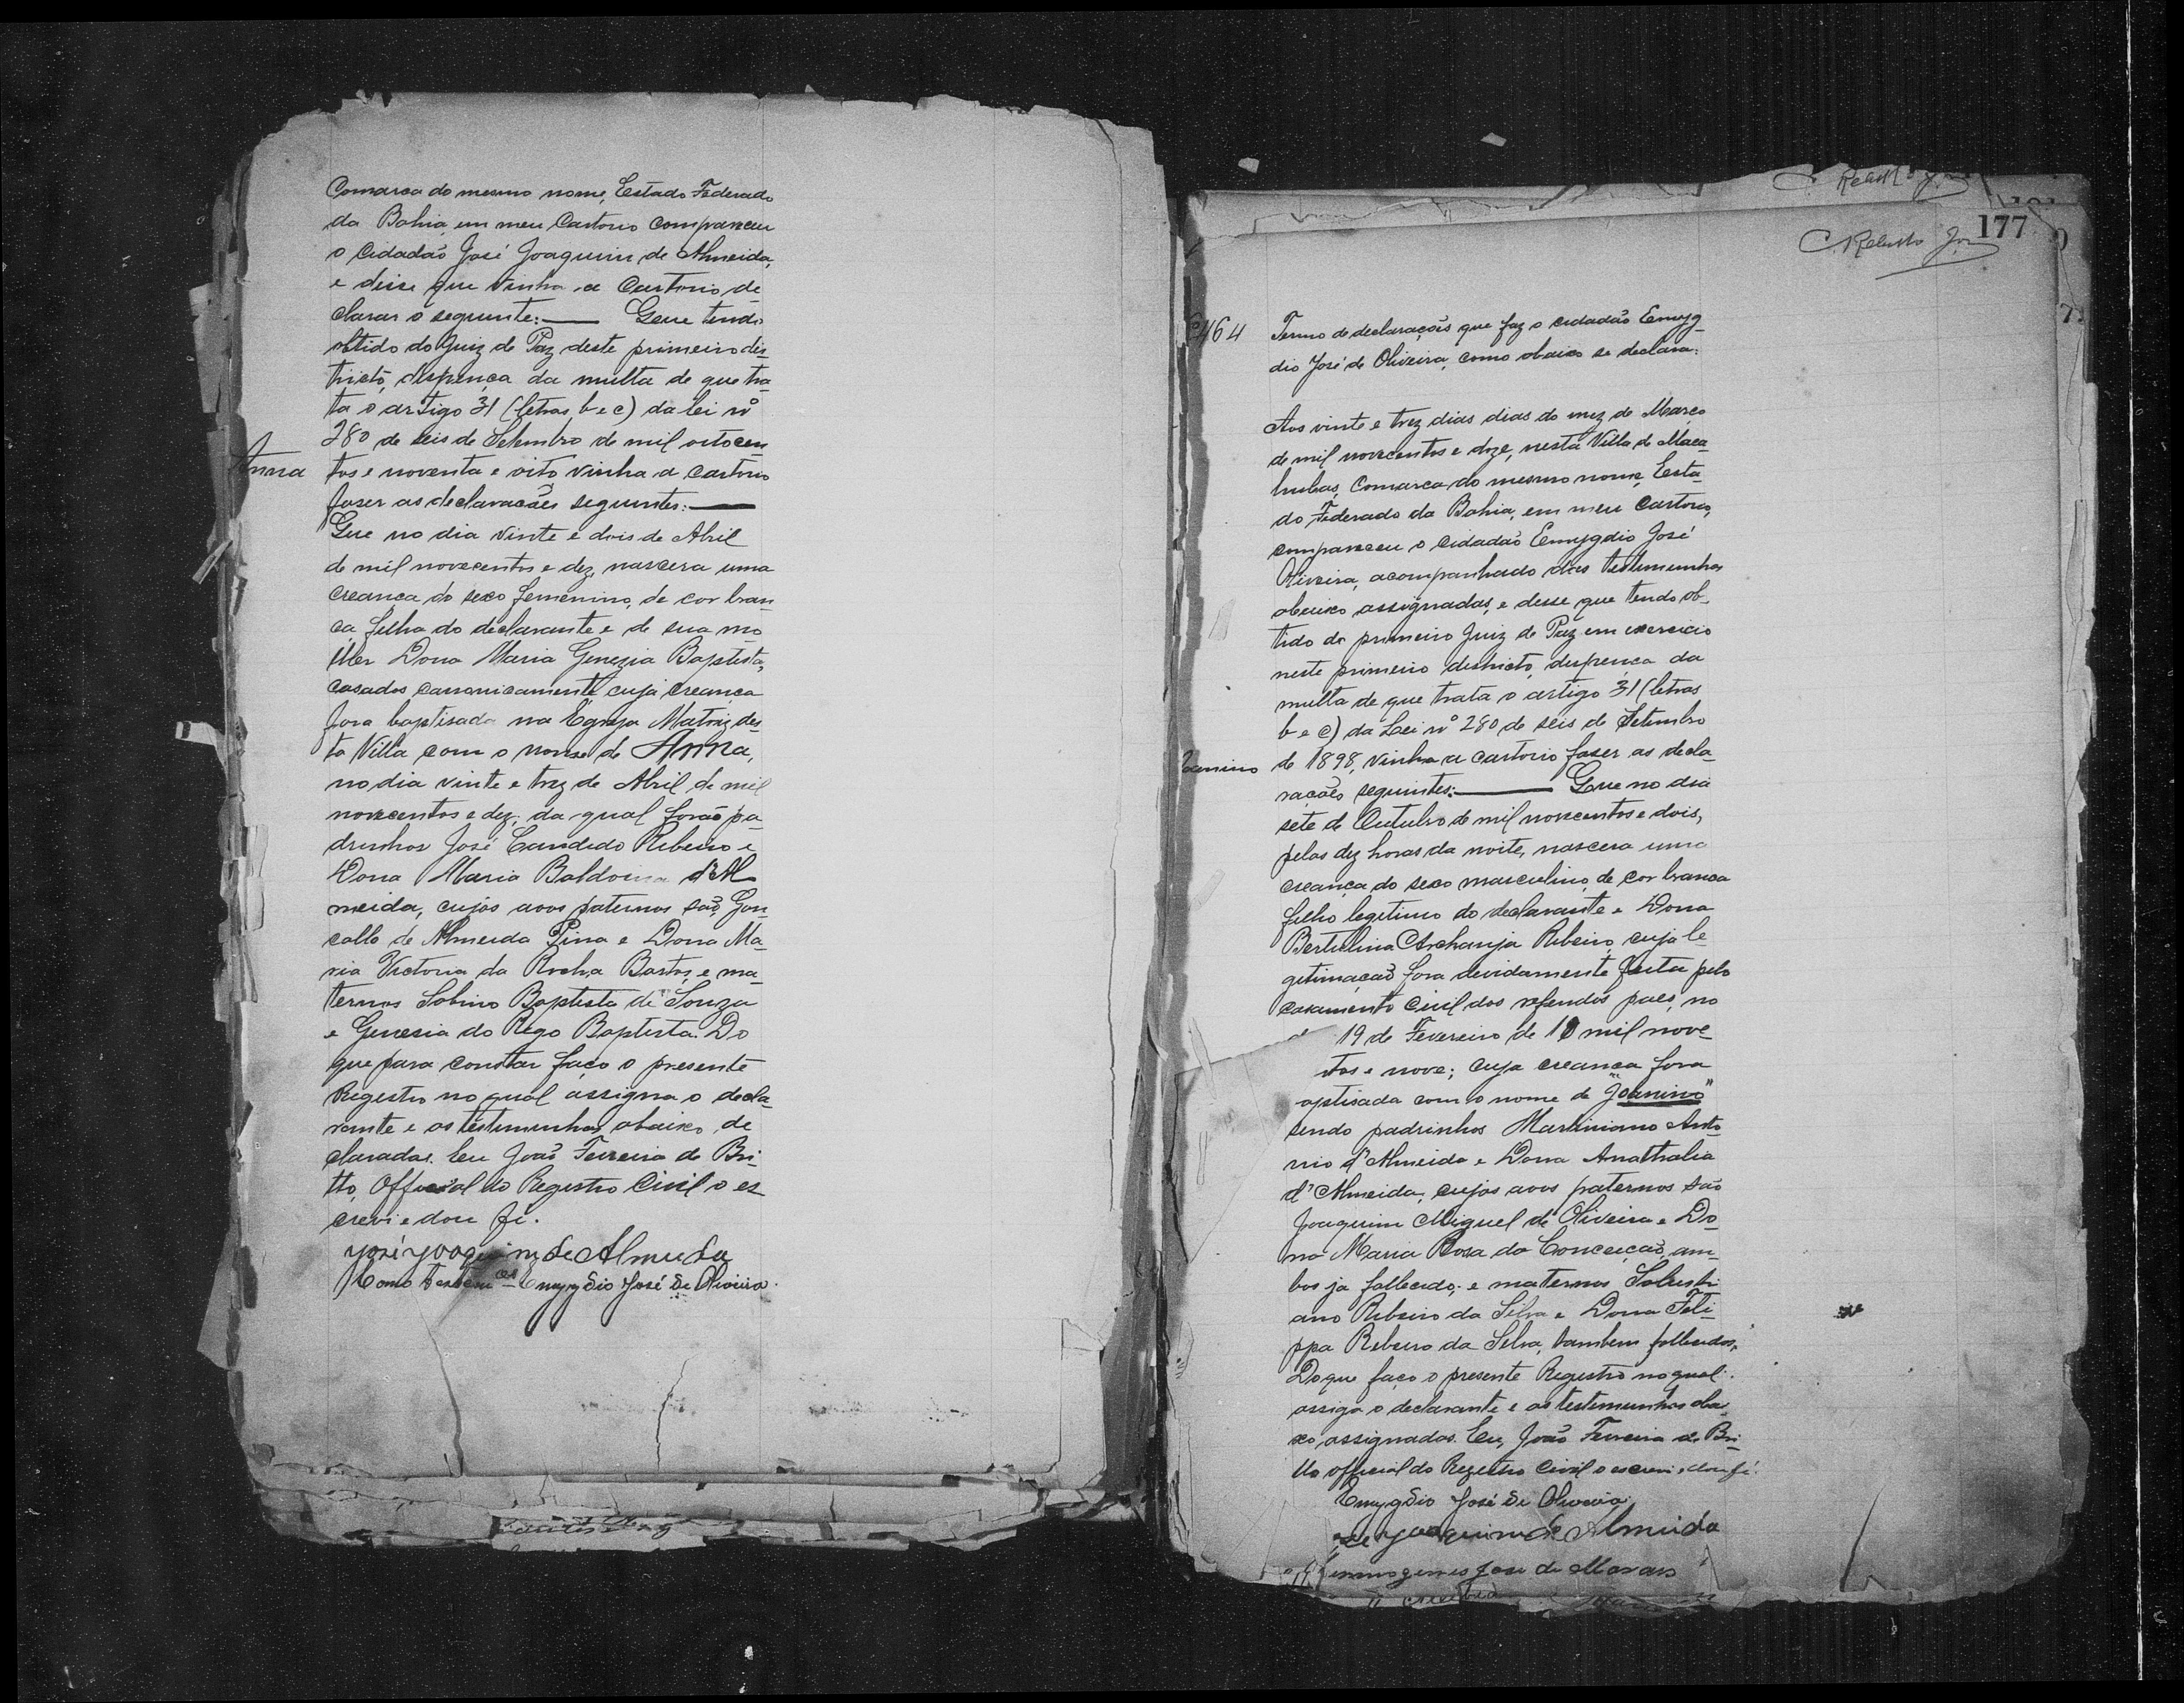 Comarca do mesmo nome, Estado Federado
da Bahia, em meu Cartorio compareceu
o cidadão José Joaquim de Almeida,
e disse que vinha a Cartorio de
clarar o seguinte: — Que tendo
obtido do Juiz de Paz deste primeiro dis-
tricto, dispença da multa de que tra-
ta o artigo 31 (letras b e c) da lei nº
280 de seis de Setembro de mil oitocen
Anna
tos e noventa e oito, vinha a cartorio
faser as declaracões seguintes: —
Que no dia vinte e dois de Abril
de mil novecentos e dez, nascera uma
creança do sexo femenino, de cor bran-
ca filha do declarante e de sua mo
lher Dona Maria Genezia Baptista,
casados canonicamente, cuja creança
fora baptisada na Egreja Matriz des-
ta Villa com o nome de Anna,
no dia vinte e trez de Abril de mil
novecentos e dez, da qual forão pa-
drinhos José Candido Ribeiro e
Dona Maria d'Al-
meida, cujos avos paternos são, Gon-
callo de Almeida Pina e Dona Ma-
ria Victoria da Rocha Bastos, e ma-
ternos Sabino Baptista de Souza
e Genesia do Rego Baptista. Do
que para constar faço o presente
Registro no qual assigna o decla-
rante e as testimunhas abaixo de
claradas. Eu João Ferreira de Bri-
tto, Official do Registro Civil o es
crevi e dou fé.
José Joaquim de Almeida
Como Emygdio José de Oliveira.
C. Rebello Jor
177
C. Rebello Jor
7
464
Termo de declarações que faz o cidadão Emyg-
dio José de Oliveira, como abaixo se declara:
Aos vinte e trez dias dias do mez de Março
de mil novecentos e doze, nesta Villa de Maca-
hubas, Comarca do mesmo nome, Esta-
do Federado da Bahia, em meu Cartorio,
compareceu o cidadão Emygdio José
Oliveira, acompanhado das testimunhas
abaixo assignadas, e desse que tendo ob-
tido do primeiro Juiz de Paz em exercicio
neste primeiro destricto, dispença da
multa de que trata o artigo 31 (letras
b e c) da Lei nº 280 de seis de Setembro
Joanino
de 1898, vinha a cartorio faser as decla-
racões seguintes: — Que no dia
sete de Outubro de mil novecentos e dois,
pelas dez horas da noite, nascera uma
creança do sexo masculino, de cor branca
filho legitimo do declarante e Dona
Bertulina Archanja Ribeiro, cuja le
gitimação fora devidamente feita pelo
casamento civil dos referidos paes, no
19 de Fevereiro de mil nove-
tos e nove; cuja creança fora
aptisada com o nome de "Joanino"
sendo padrinhos Martiniano Anto-
nio d'Almeida e Dona Anathalia
d'Almeida, cujos avos paternos são
Joaquim Miguel de Oliveira e Do-
na Maria Rosa da Conceição, am-
bos ja fallecido; e maternos Salusti-
ano Ribeiro da Silva e Dona Feli-
ppa Ribeiro da Silva, tambem fallecidos,
Do que faço o presente Registro no qual
assiga o declarante e as testemunhas aba
xo assignadas. Eu, João Ferreira de Bri-
tto official do Registro Civil o escrevi e dou fé.
Emygdio José de Oliveira
Joaquim de Almeida
José de Moraes